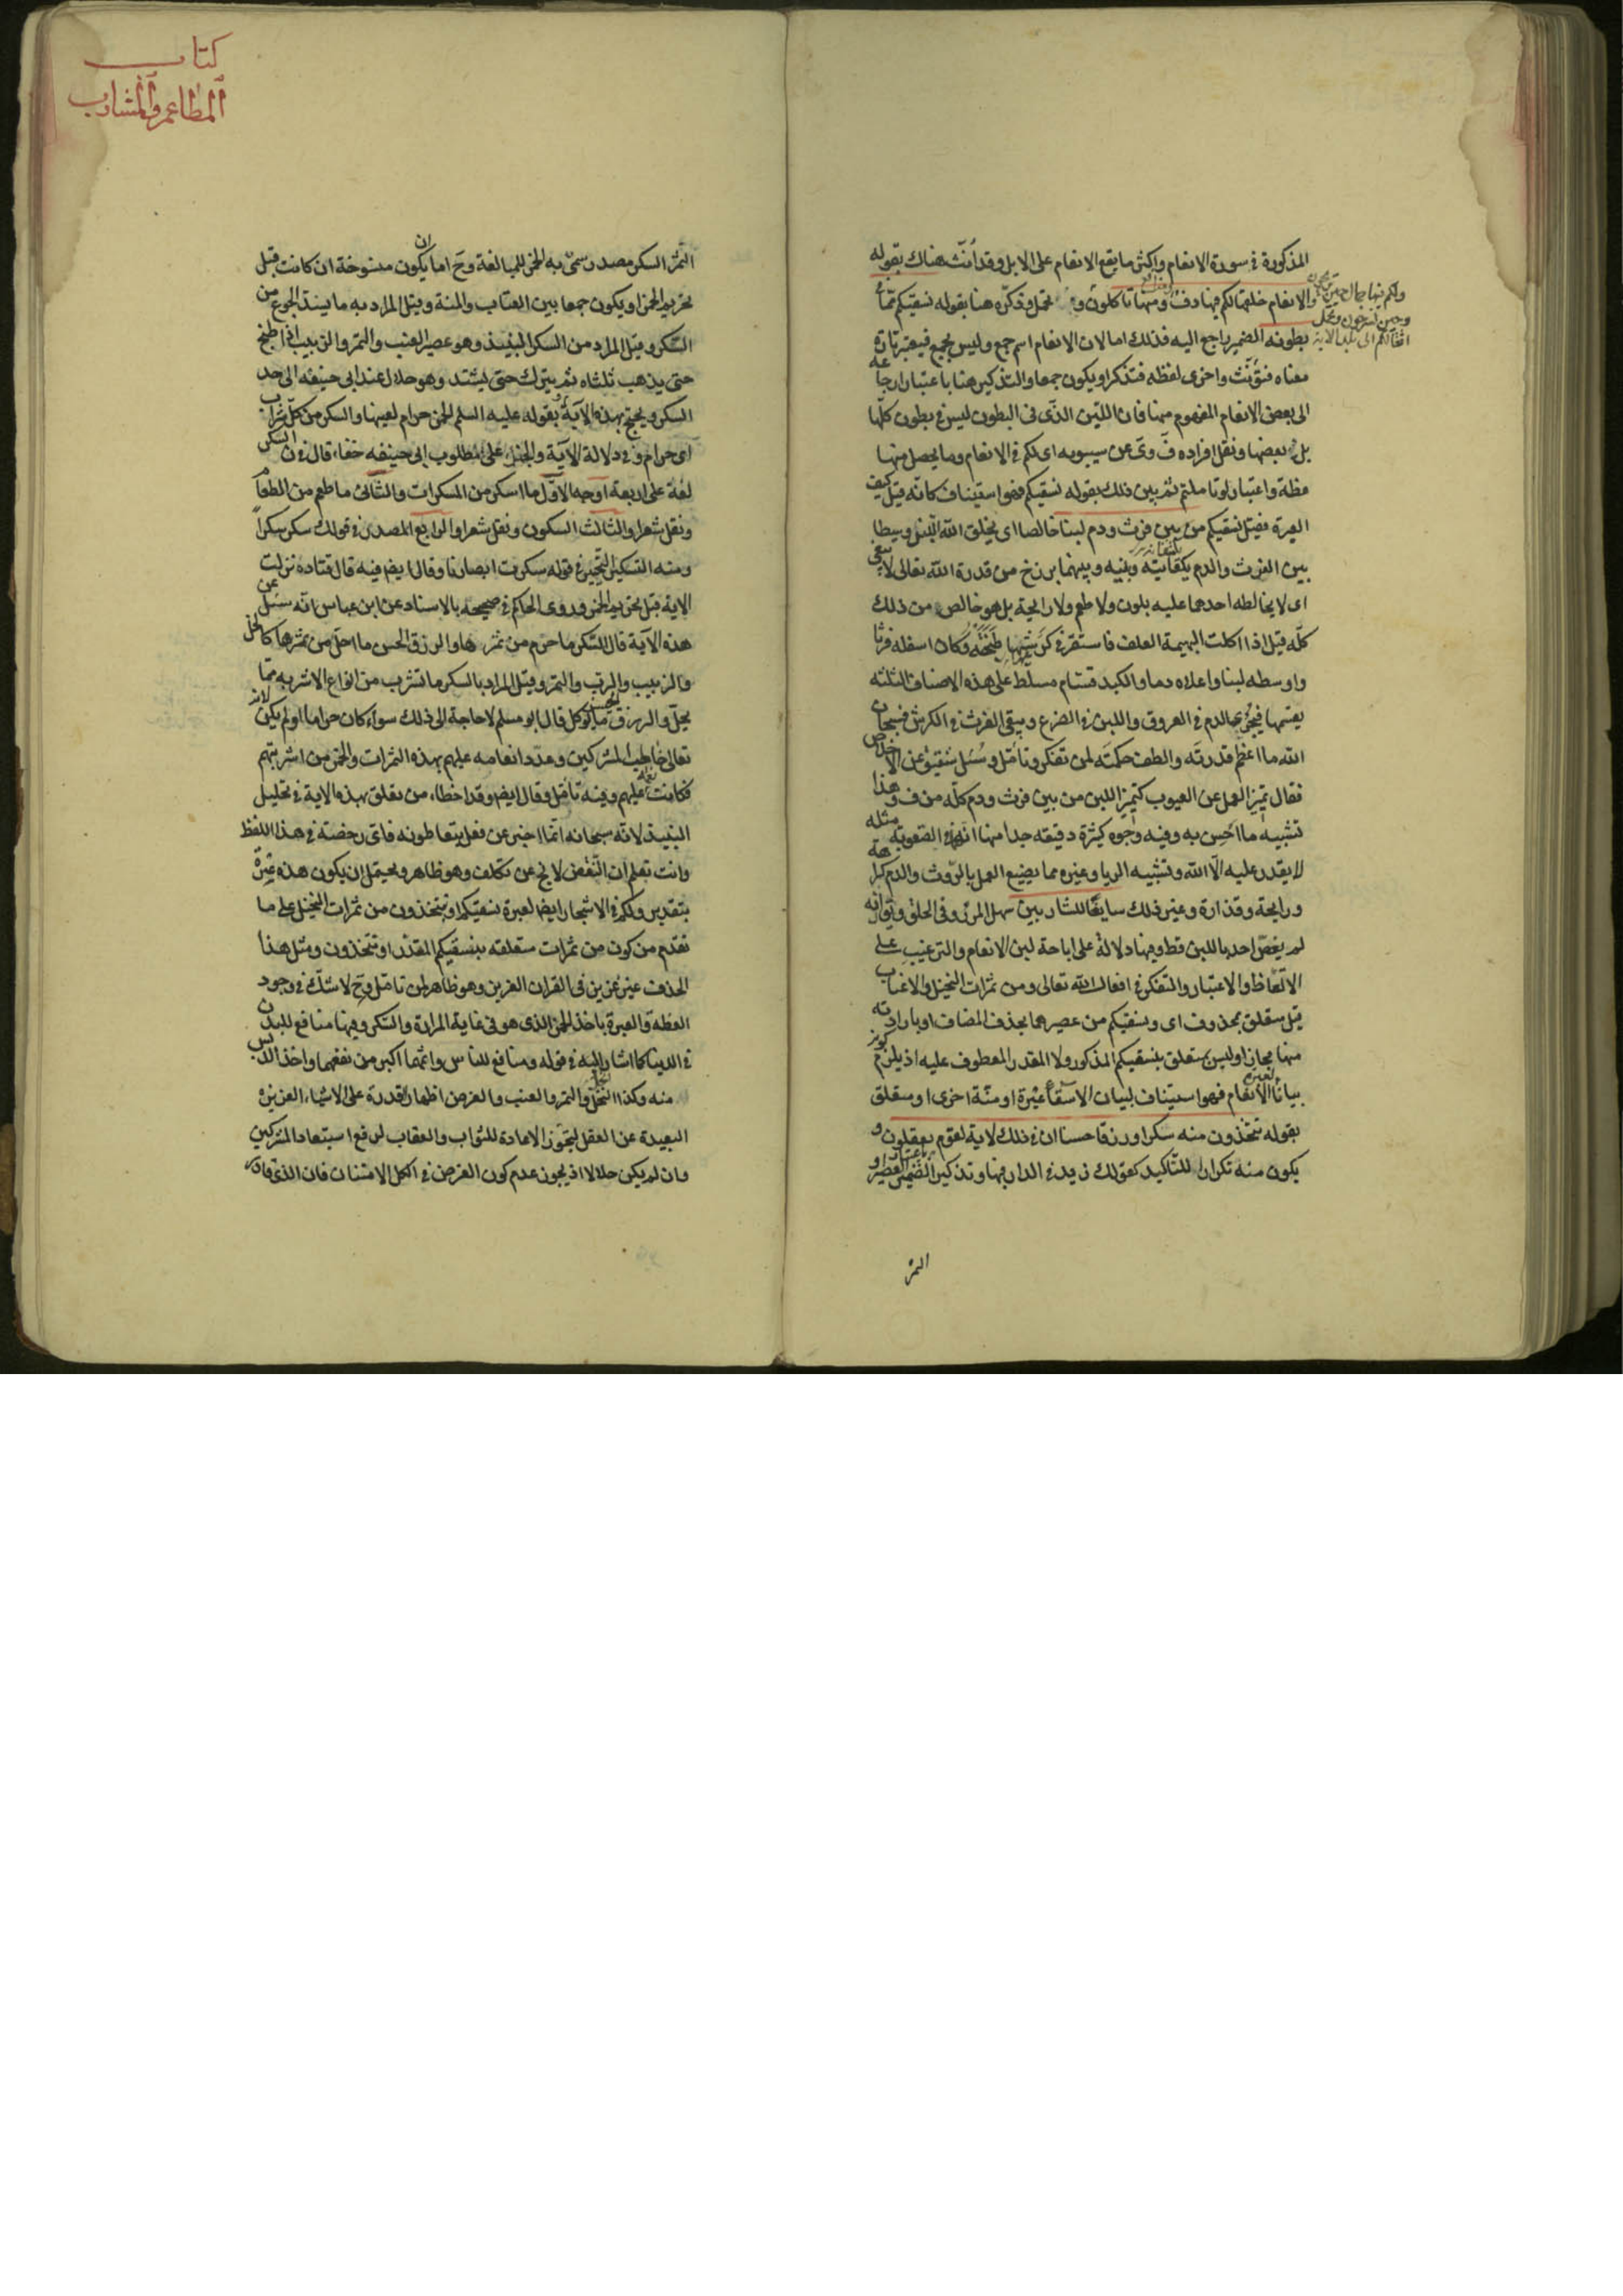 المذكورة في سورة الانعام واكثر ما يقع الانعام على الابل وقد أنث هناك بقوله
والانعام خلقها لكم فيها دفء ومنها تأكلون و تحمل وذكّره هنا بقوله نسقيكم ممّا
ولكم فيها جمال حين تريحون
وحين تسرحون وتحمل
اثقالكم الى بلد الآية
بطونه الضمير راجع اليه فذلك اما لان الانعام اسم جمع وليس بجمع فيعتبر تارة
معناه فتؤنّث واخرى لفظه فتذكر او يكون جمعا والتذكير هنا باعتبار ارجاعه
الى بعض الانعام المفهوم منها فان اللبن الذي في البطون ليس في بطون كلّها
بل بعضها ونقل افراده عن سيبويه اى لكم في الانعام وما يحصل منها
عظة واعتبار لو تاملتم ثم بين ذلك بقوله نسقيكم فهو استيناف كانه قيل كيف
العبرة فقيل نسقيكم من بين فرث ودم لبنا خالصا اى يخلق الله اللبن وسيطا
بين الفرث والدم يكتنفانه وبينه وبينهما برزخ من قدرة الله تعالى لا يبغى
اى لا يخالطه احدهما عليه بلون ولا طعم ولا رايحة بل هو خالص من ذلك
كلّه قيل اذا اكلت البهيمة العلف فاستقر في كرشها طبخته وكان اسفله فرثا
واوسطه لبنا واعلاه دما والكبد قسّام مسلط على هذه الاصناف الثلثة
يقسمها فيجرى الدم في العروق واللبن في الضرع ويبقى الفرث في الكرش فسبحان
الله ما اعظم قدرته والطف حكمته لمن تفكر وتأمّل وسئل شقيق عن الاخلاص
فقال تميز العمل عن العيوب كتميز اللبن من بين فرث ودم كلّه من ف وهذا
تشبيه ما احسن به وفيه وجوه كثيرة دقيقه جدا منها انه في الصعوبة مثله
لا يقدر عليه الّا الله وتشبيه الريا وغيره مما يضيع العمل بالرّوث والدم كراهة
ورايحة وقذارة وغير ذلك سايغًا للشاربين سهل المرّ في الحلق ويقال انه
لم يغصّ احد باللبن قط وفيها دلالة على اباحة لبن الانعام والترغيب على
الاتّعاظ والاعتبار والتفكر في افعال الله تعالى ومن ثمرات النخيل والاعناب
قيل متعلق بمحذوف اى ونسقيكم من عصيرهما بحذف المضاف او بارادته
منها مجازا وليس بمتعلق بنسقيكم المذكور ولا المقدر المعطوف عليه اذ يلزم كونه
بيانًا لعبرة الانعام فهو استيناف لبيان الاسقاء عبرة او منّة اخرى او متعلق
بقوله تتخذون منه سكرا ورزقا حسنا ان في ذلك لاية لقوم يعقلون و
يكون منه تكرارا للتأكيد كقولك زيد في الدار فيها وتذكير الضمير باعتبار العصير او
التمر
كتاب
المطاعم والمشارب
التّمر السكر مصدر سمّى به الخمر للمبالغة وح اما ان يكون منسوخة ان كانت قبل
تحريم الخمر او يكون جمعا بين العتاب والمنة وقيل المراد به ما يسدّ الجوع من
السّكر وقيل المراد من السكر النبيذ وهو عصير العنب والتمر والزبيب اذا طبخ
حتى يذهب ثلثاه ثم يترك حتى يشتد وهو حلال عند ابى حنيفه الى حد
السكر ويحتج بهذه الآية وبقوله عليه السلم الخمر حرام لعينها والسكر من كلّ شراب
اى حرام وفي دلالة الآية والخبر على مطلوب ابى حنيفه خفاء قال في ن السكر
لغة على اربعة اوجه الاوّل ما اسكر من المسكرات والثّانى ما طعم من الطعام
ونقل شعرا والثالث السكون ونقل شعرا والرابع المصدر في قولك سكر سكرًا
ومنه التسكير التّحيير في قوله سكرت ابصارنا وقال ايضم فيه قال قتادة نزلت
الاية قبل تحريم الخمر وروى الحاكم في صحيحه بالاسناد عن ابن عباس انّه سئل عن
هذه الآية قال السّكر ما حرم من ثمرها والرزق الحسن ما احلّ من ثمرها كالخل
والزبيب والرّب والتمر وقيل المراد بالسكر ما تشرب من انواع الاشربه ممّا
يحلّ والرزق الحسن ما يؤكل قال ابو مسلم لا حاجة الى ذلك سواء كان حراما او لم يكن لانه
تعالى خاطب المشركين وعدّد انعامه عليهم بهذه الثمرات والخمر من اشربتهم
فكانت نعمة عليهم وفيه تأمّل وقال ايضم وقد اخطاء من تعلق بهذه الاية في تحليل
النبيذ لانّه سبحانه انّما اخبر عن فعل يتعاطونه فاىّ رخصة في هذا اللفظ
وانت تعلم ان النّقض لا يخ عن تكلف وهو ظاهر ويحتمل ان يكون هذه عبرة
بتقدير ولكم في الاشجار ايضا لعبرة نسقيكم او تتخذون من ثمرات النخيل على ما
تقدم من كون من ثمرات متعلقه بنسقيكم المقدر او تتخذون ومثل هذا
الحذف غير عزيز في القران العزيز وهو ظاهر لمن تامّل وح لا شكّ في وجود
العظة والعبرة باخذ الخمر الذى هو في غاية المرارة والسّكر وفيها منافع للبدن
في الدنيا كما اشار اليه في قوله ومنافع للناس واثمهما اكبر من نفعهما واخذ الدبس
منه وكذا النخل والتمر والعنب والغرض اظهار القدرة على الاشياء العزيزة
البعيدة عن العقل ليتجوّز الاعادة للثواب والعقاب لرفع استبعاد المشركين
وان لم يكن حلالا اذ يجوز عدم كون الغرض في الكل الامتنان فان الذى قاله